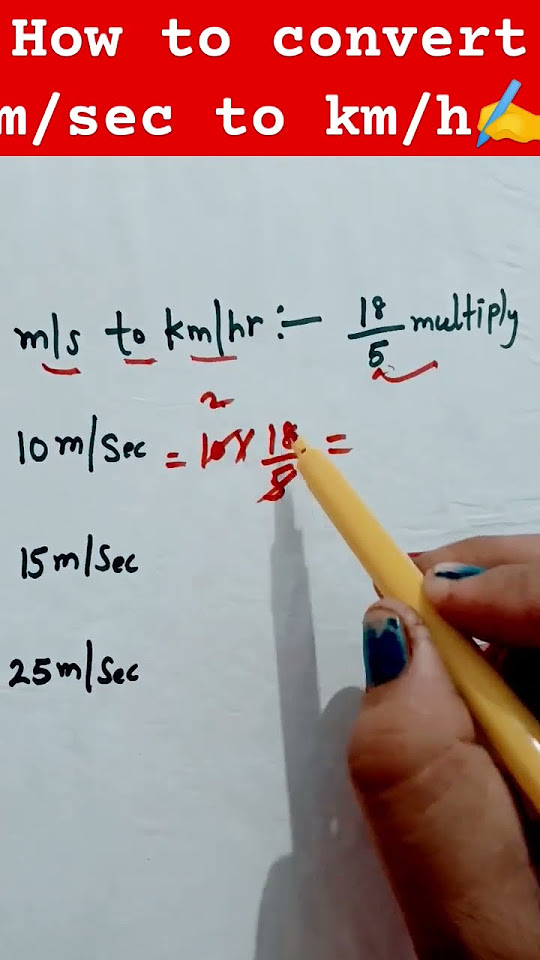 How to convert
m/sec to km/h✍️
m/s to km/hr :- 18/5 multiply
2
10 m/Sec = 10 × 18/5 =
15 m/Sec
25 m/Sec